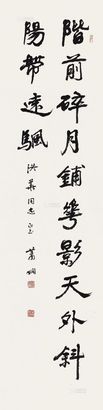 階前碎月鋪花影天外斜
陽帶遠颿
洪萊同志正
蕭嫻